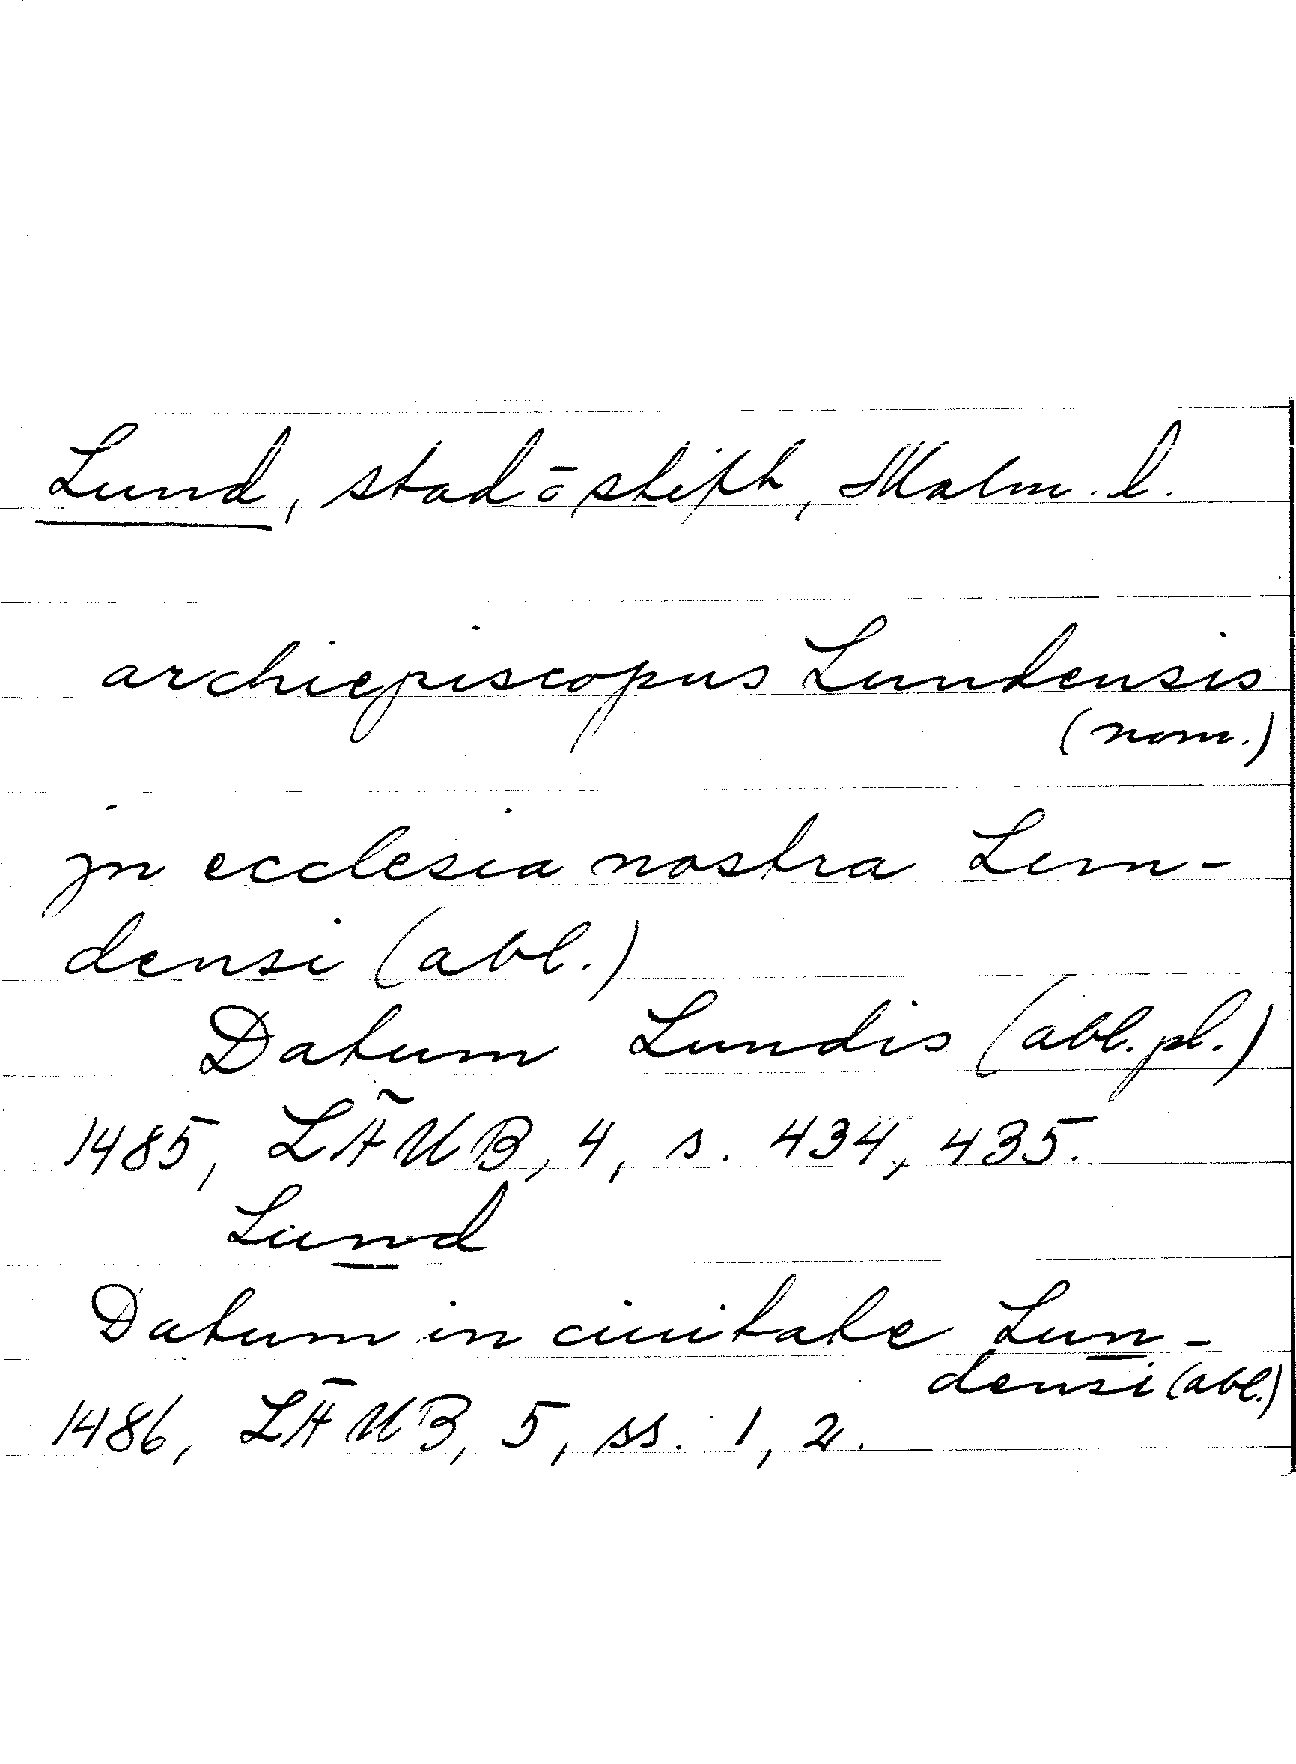 Lund, stad ō stift, Malm. l.
archiepiscopus Lundensis
(nom.)
jn ecclesia nostra Lun-
densi (abl.)
Datum Lundis (abl. pl.)
1485, LÄUB, 4, s. 434, 435.
Lund
Datum in ciuitate Lun-
densi (abl.)
1486, LÄUB, 5, ss. 1, 2.